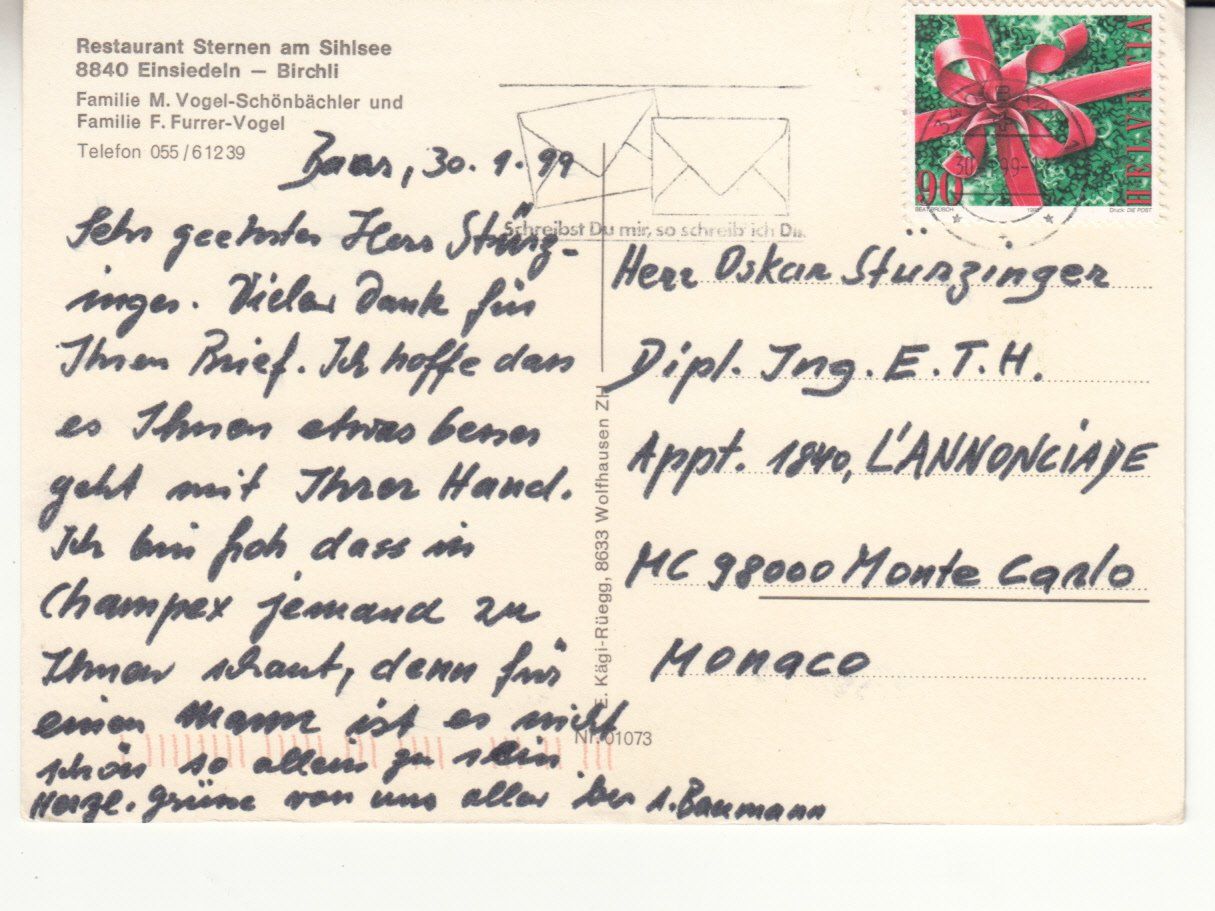 Restaurant Sternen am Sihlsee
8840 Einsiedeln — Birchli
Familie M. Vogel-Schönbächler und
Familie F. Furrer-Vogel
Telefon 055/61239
Baar, 30. 1. 99
Sehr geehrter Herr Stürz-
inger. Vielen Dank für
Ihren Brief. Ich hoffe dass
es Ihnen etwas besser
geht mit Ihrer Hand.
Ich bin froh dass in
Champex jemand zu
Ihnen schaut, denn für
einen Mann ist es nicht
schön so allein zu sein
Herzl. Grüsse von uns allen A. Baumann
Schreibst Du mir, so schreib' ich Dir.
90
HELVETIA
BEAT BRÜSCH
Druck: DIE POST
Herr Oskar Stürzinger
Dipl. Ing. E.T.H.
Appt. 1840, L'ANNONCIADE
MC 98000 Monte Carlo
Monaco
E. Kägi-Rüegg, 8633 Wolfhausen ZH
Nr. 01073